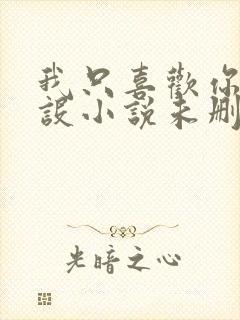 我只喜歡你
設小說未刪
光暗之心